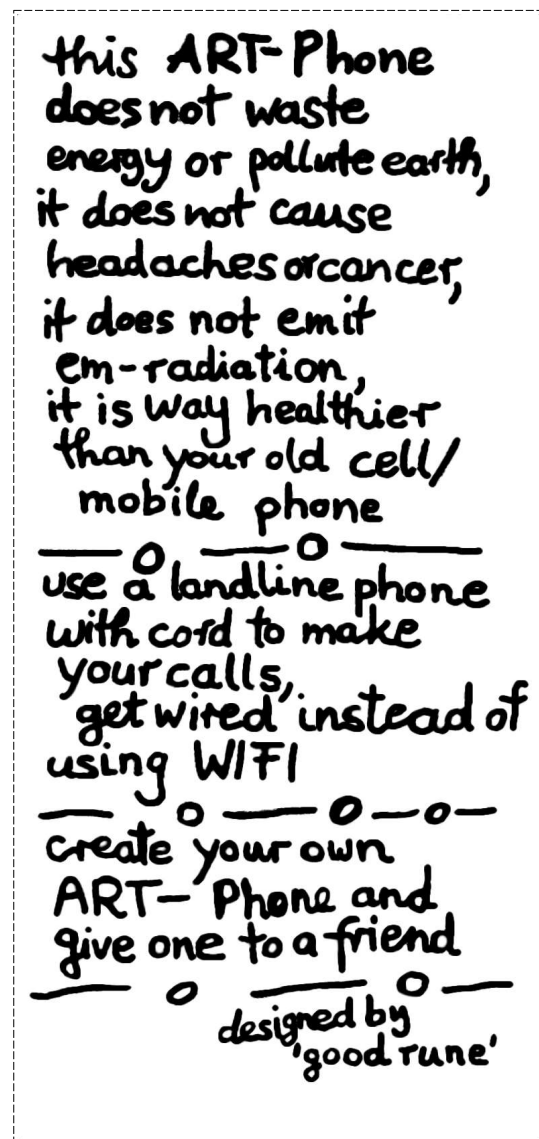 this ART-Phone
does not waste
energy or pollute earth,
it does not cause
headaches or cancer,
it does not emit
em-radiation,
it is way healthier
than your old cell/
mobile phone
use a landline phone
with cord to make
your calls,
get wired instead of
using WIFI
create your own
ART- Phone and
give one to a friend
designed by
'good rune'